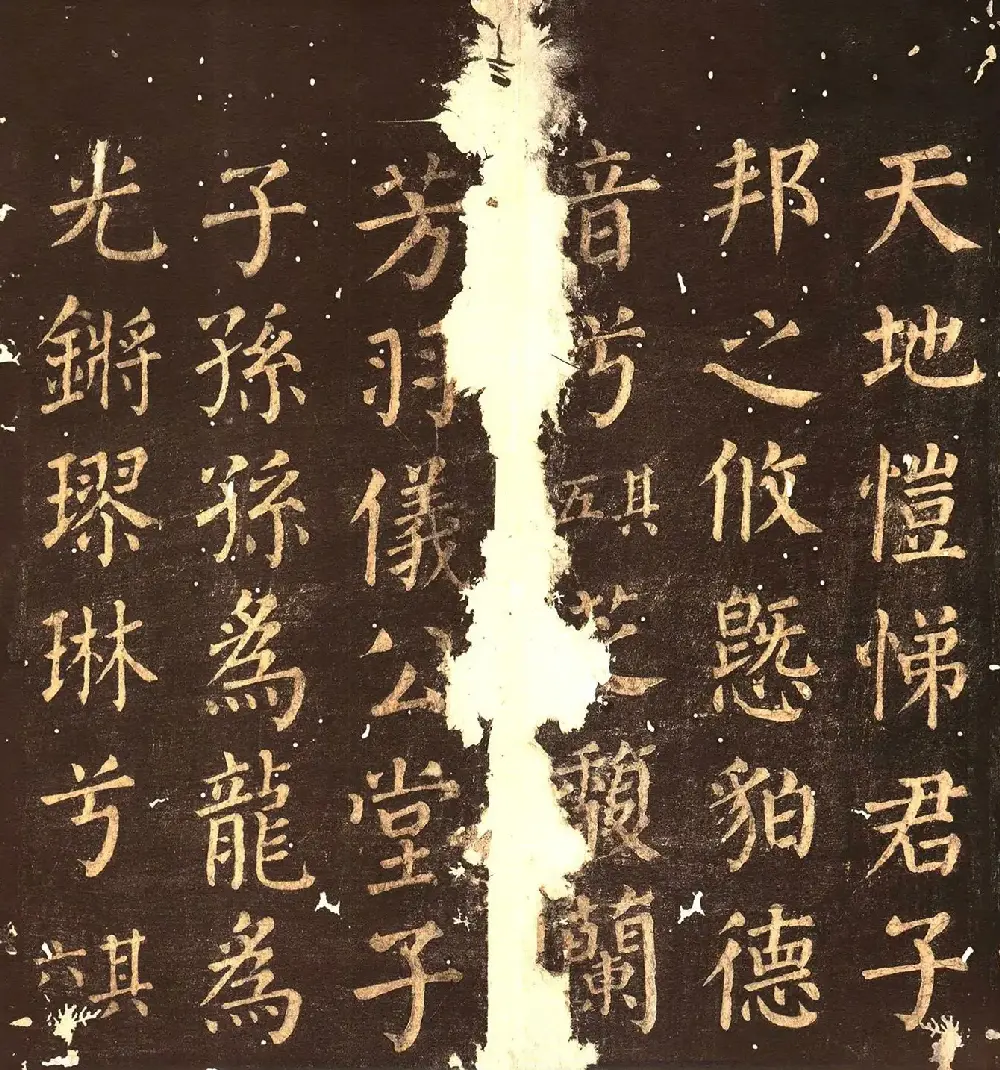 天地愷悌君子
邦之攸貊德
音兮其五芝馥蘭
芳羽儀公堂子
子孫孫爲龍爲
光鏘璆琳兮其六